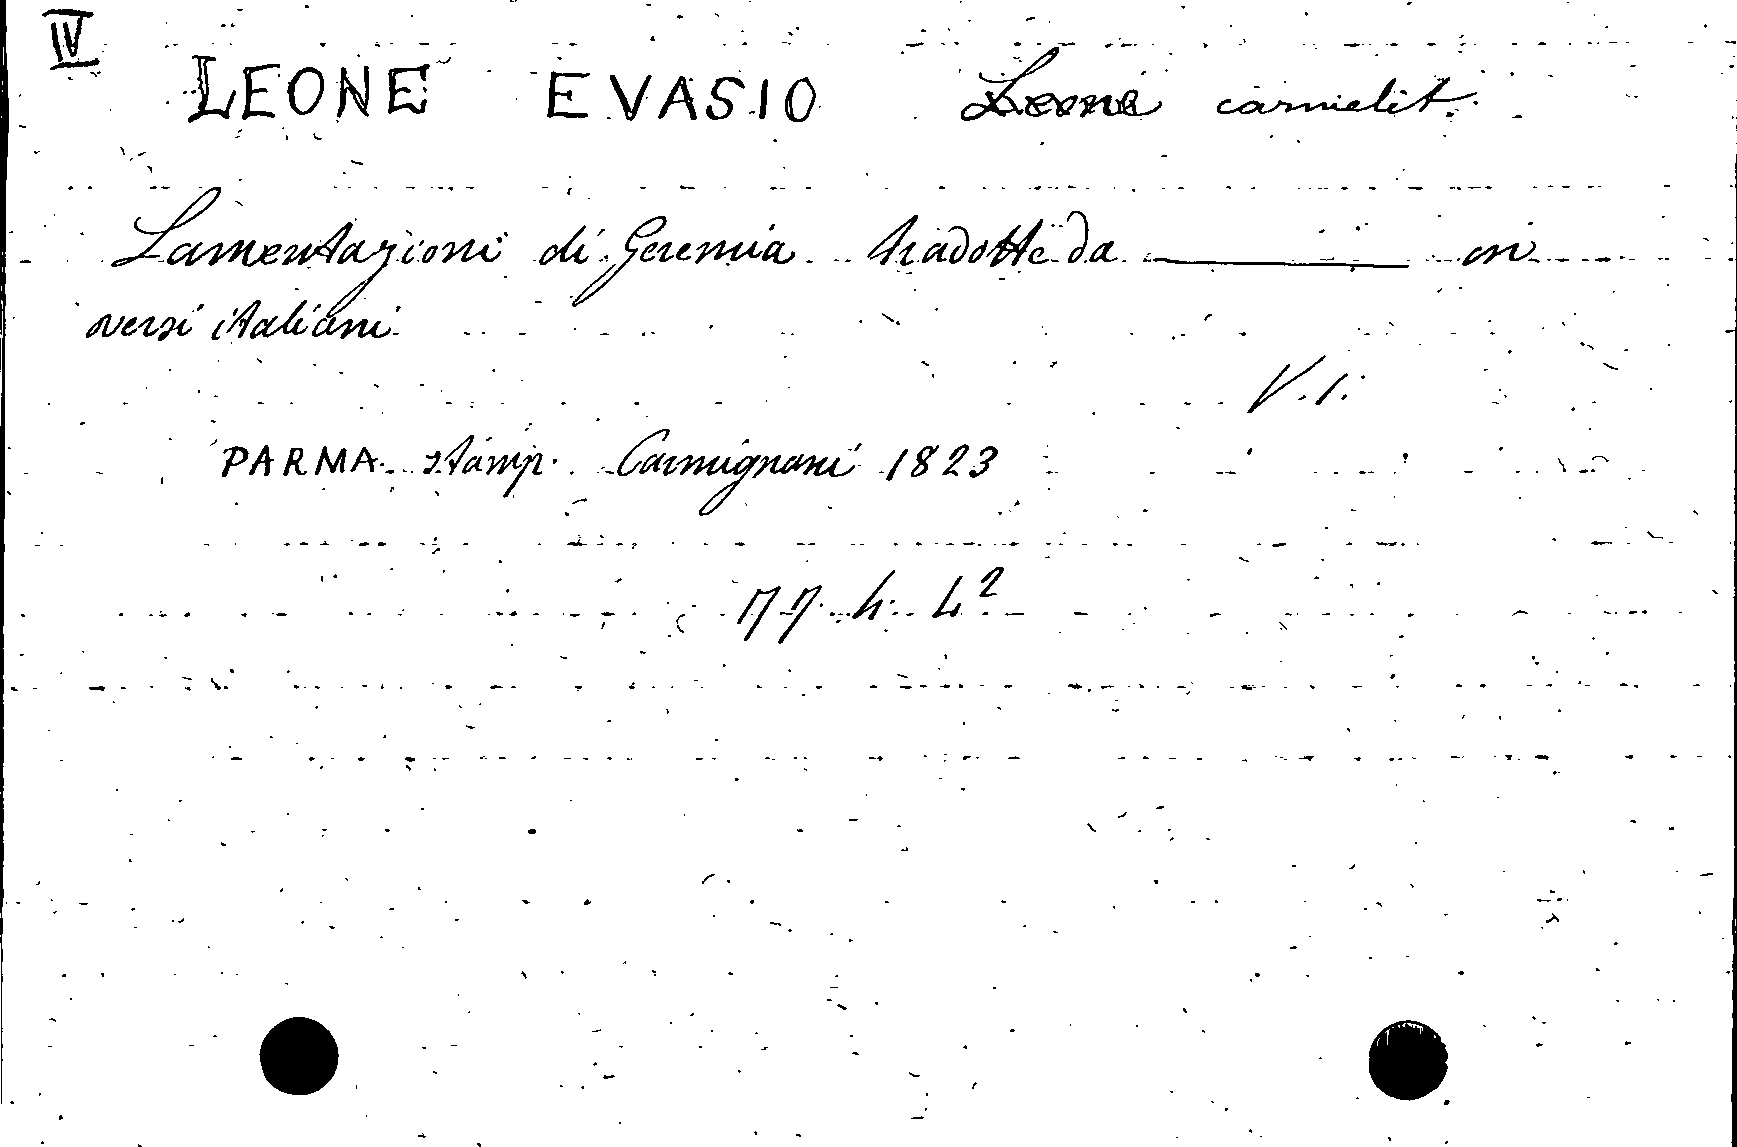 IV
LEONE EVASIO Leone carmelit.
Lamentazioni di Geremia tradotte da ______ in
versi italiani
V. 1.
PARMA stamp. Carmignani 1823
77. 4. 4²